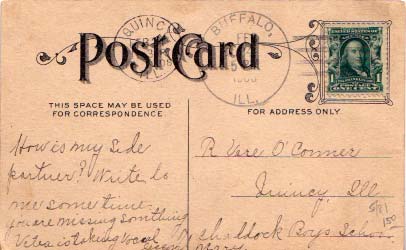 QUINCY
ILL.
BUFFALO,
ILL.
Post Card
UNITED STATES OF AMERICA
1 1
ONE CENT
THIS SPACE MAY BE USED
FOR CORRESPONDENCE.
FOR ADDRESS ONLY.
How is my side
partner? Write to
me some time.
you are missing something
is taking vocal
R Vare O'Conner
Quincy Ill
Boys School